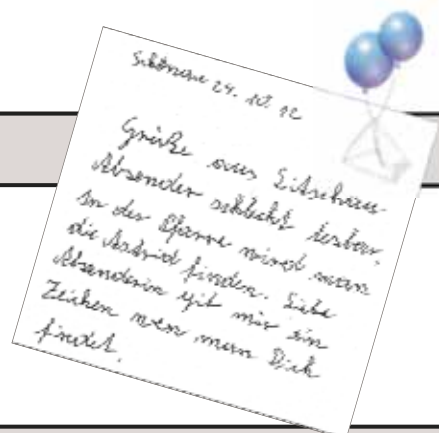 24. 10. 12
Grüße aus
Absender schlecht lesbar,
in der Pfarre wird man
die Astrid finden. Liebe
Absenderin gib mir ein
Zeichen wen man Dich
findet.